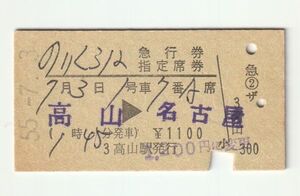 のりくら12
急行券
指定席券
7月3日1号車7番A席
高山▶名古屋
時45分発車)¥1100
3高山駅発行
00円に変更
55.-7.-3
急②ザ
300